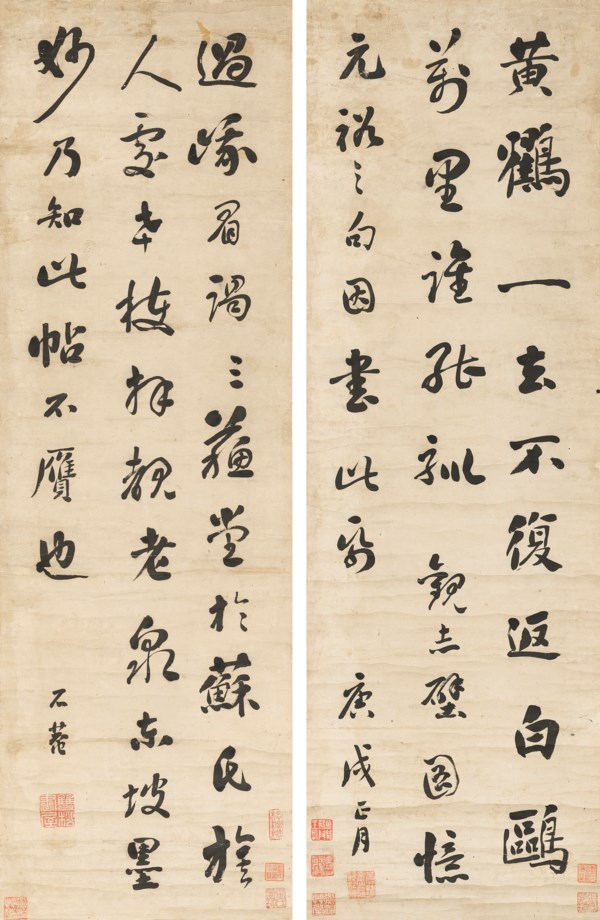 黃鶴一去不復返白鷗
萬里誰能馴 觀赤壁圖憶
元裕之句因書此帋 庚戌正月
過峨眉謁三蘇堂於蘇氏族
人處幸獲拜觀老泉東坡墨
妙乃知此帖不贗也
石菴